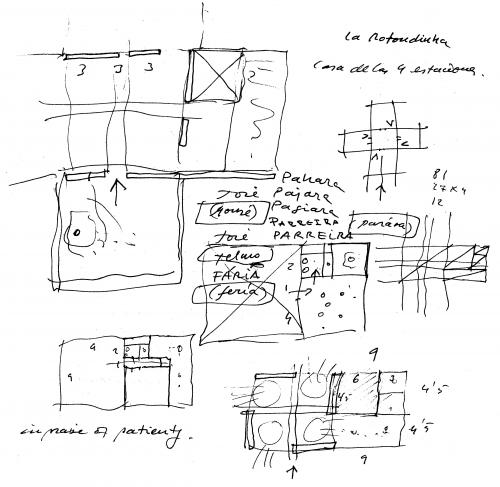 La Rotondinha
Casa de las 4 estaciones.
3 3 3
2
81
27 x 4
12
Pahara
José Pájara
(house) Pagiara
PARREIRA (parára)
José PARREIRA
telmo
FARIA
(feria)
2
1
4
4
2
1
9
9
6 2
4'5
4'5
1
4'5
9
in praise of patienty.